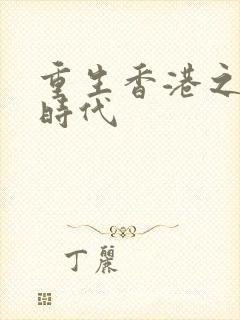 重生香港之
時代
丁麗